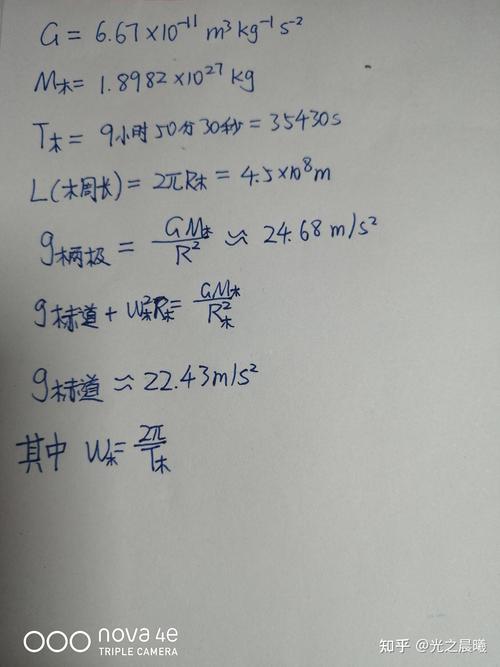 G = 6.67×10⁻¹¹ m³kg⁻¹s⁻²
M木 = 1.8982×10²⁷kg
T木 = 9小时50分30秒 = 35430s
L(木周长) = 2πR木 = 4.5×10⁸m
g木两极 = GM木/R² ≈ 24.68 m/s²
g木赤道 + W木²R木 = GM木/R木²
g木赤道 ≈ 22.43m/s²
其中 W木 = 2π/T木
nova 4e
TRIPLE CAMERA
知乎 @光之晨曦